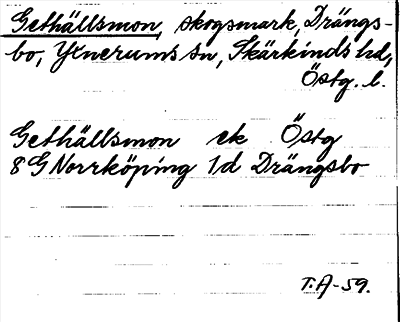 Gethällsmon, skogsmark, Drängs-
bo, Yxnerums sn, Skärkinds hd,
Östg. l.
Gethällsmon ek Östg
8 G Norrköping 1d Drängsbo
T.A-59.